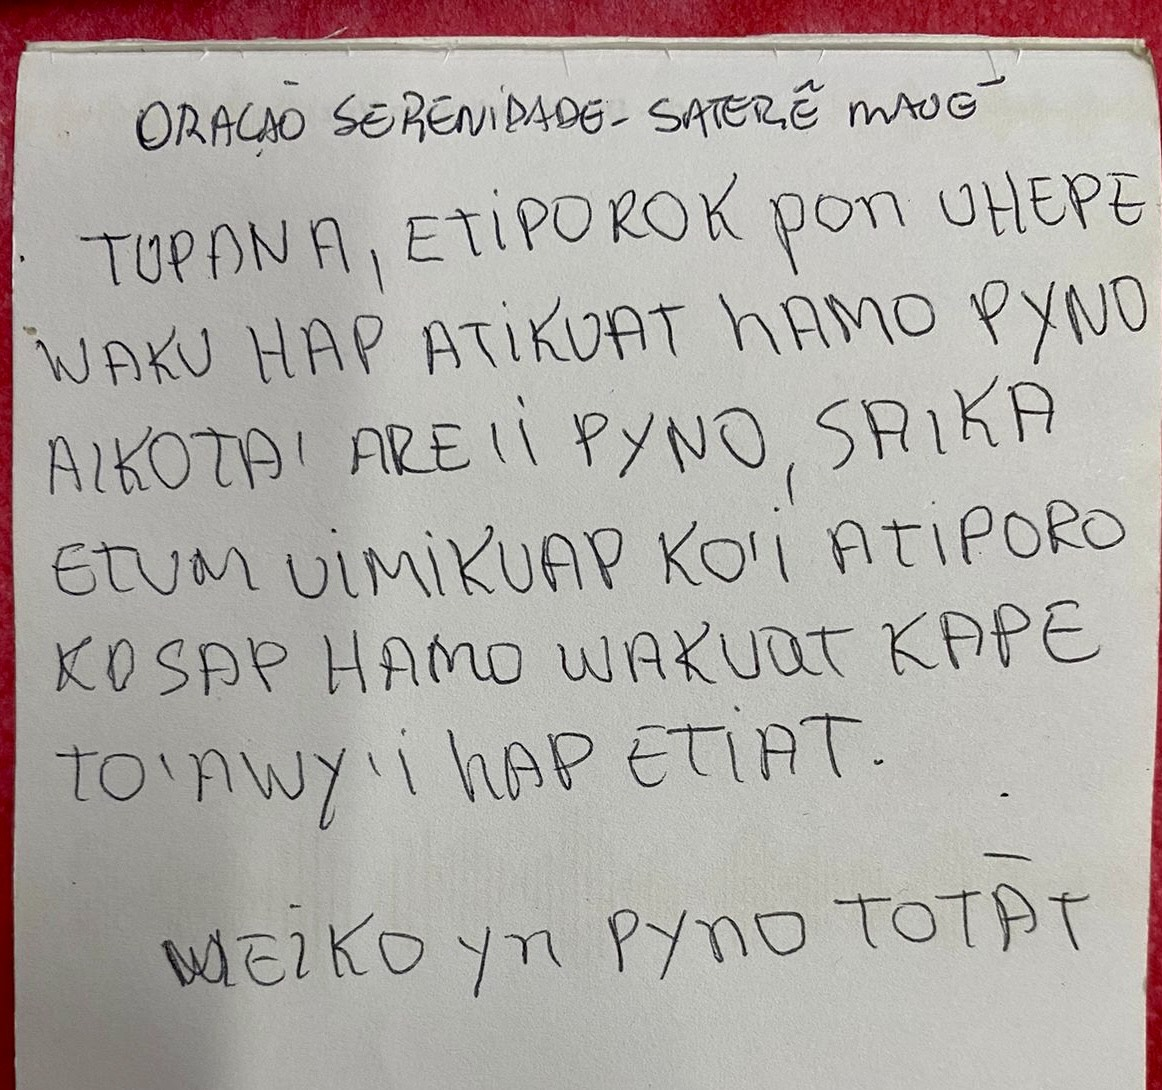 ORAÇÃO SERENIDADE - SATERẼ MAUÉ
TUPANA, ETIPOROK pon UHEPE
WAKU HAP ATIKUAT hAMO PYNO
AIKOTA' ARE II PYNO, SAIKA
ETUM UIMIKUAP KO'I ATIPORO
KOSAP HAMO WAKUAT KAPE
TO'AWY'I hAP ETIAT.
WEIKO yn PYNO TOTĀT